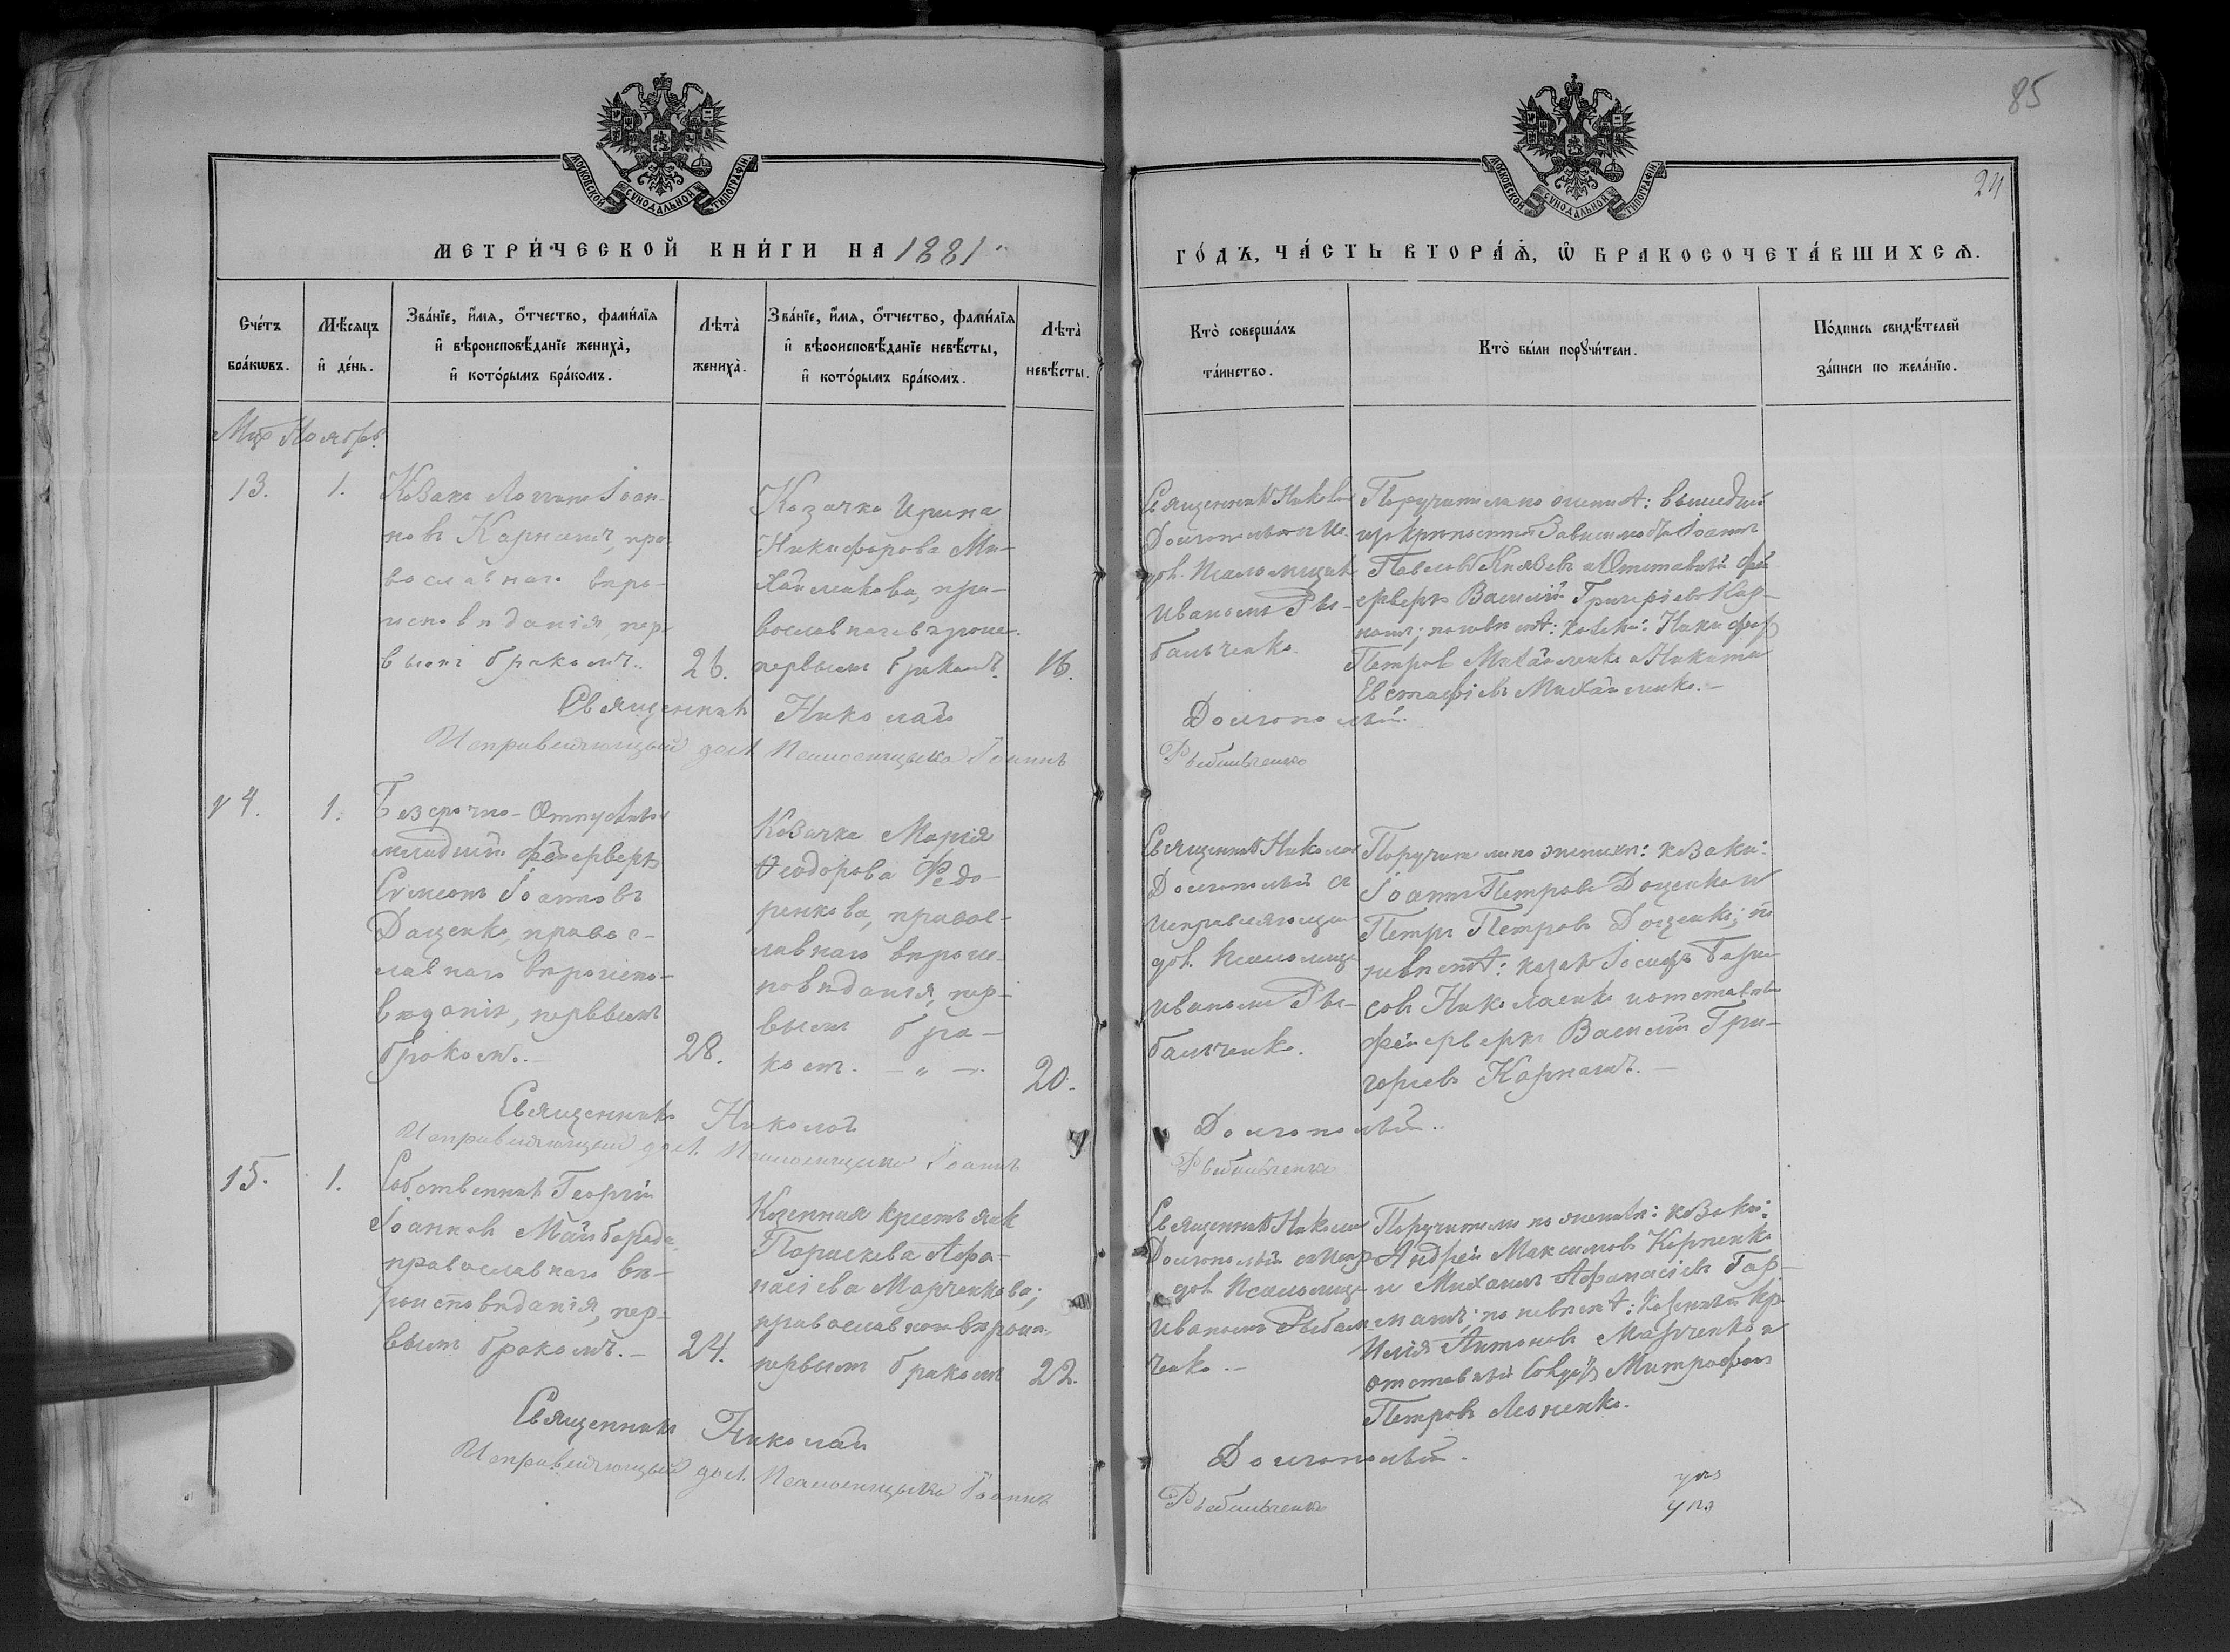 85
24
МОСКОВСКОЙ СѴНОДАЛЬНОЙ ТИПОГРАФІИ
МОСКОВСКОЙ СѴНОДАЛЬНОЙ ТИПОГРАФІИ
МЕТРИ́ЧЕСКОЙ КНИ́ГИ НА 1881
ГО́ДЪ, ЧА́СТЬ ВТОРА́Ѧ, Ѿ БРАКОСОЧЕТА́ВШИХСѦ.
Сче́тъ
бра́кѡвъ.
Мѣ́сяцъ
и҆ де́нь.
Зва́нїе, и҆́мя, о҆́тчество, фами́лїя
и҆ вѣроисповѣ́данїе жениха̀,
и҆ кото́рымъ бра́комъ.
Лѣта̀
жениха̀.
Зва́нїе, и҆́мя, о҆́тчество, фами́лїя
и҆ вѣроисповѣ́данїе невѣ́сты,
и҆ кото́рымъ бра́комъ.
Лѣта̀
невѣ́сты.
Кто̀ соверша́лъ
та́инство.
Кто̀ бы́ли порꙋчи́тели.
По́дпись свидѣ́телей
за́писи по жела́нїю.
Мцъ Ноябрь.
13.
1.
Козакъ Іоан-
новъ Карпашъ, пра-
вославнаго вѣро-
исповѣданія, пер-
вымъ бракомъ.
26.
Козачка Ирина
Никифорова Ми-
хайликова, пра-
вославнаго вѣроис.
первымъ бракомъ.
16.
Священникъ Николай
Долгополый и Ис.
дол. Псаломщика
Иваномъ Ры-
бальченко
Поручители по женихѣ: вышедшій
изъ крѣпостной зависимости Іоаннъ
Павловъ Князевъ и Отставной фей
ерверкъ Василій Григоріевъ Кар-
пашъ; по невѣстѣ: козаки: Никифоръ
Петровъ Михайленко и Никита
Евстафіевъ Михайленко.
Священникъ Николай Долгополый.
Исправляющій дол. Псаломщика Іоаннъ Рыбальченко
14.
1.
Безсрочно-Отпускной
младшій фейерверкъ
Симеонъ Іоанновъ
Даценко, правос-
лавнаго вѣроиспо-
вѣданія, первымъ
бракомъ.
28.
Козачка Марія
Ѳеодорова Федо-
ренкова, правос-
лавнаго вѣроис-
повѣданія, пер-
вымъ бра-
комъ. - „ -.
20.
Священникъ Николай
Долгополый и
исправляющи
дол. Псаломщ.
Иваномъ Ры-
бальченко.
Поручители по женихѣ: козаки:
Іоаннъ Петровъ Доценко и
Петръ Петровъ Доценко; по
невѣстѣ: козакъ Іосифъ Бори-
совъ Николаенко и отставной
фейерверкъ Василій Гри-
горіевъ Карпашъ.
Священникъ Николай Долгополый.
Исправляющій дол. Псаломщика Іоаннъ Рыбальченко
15.
1.
Собственникъ Георгій
Іоанновъ Майборода,
православнаго вѣ-
роисповѣданія, пер-
вымъ бракомъ.
24.
Казенная крестьянк
Параскева Афа-
насіева Марченкова;
православнаго вѣроис.
первымъ бракомъ
22.
Священникъ Николай
Долгополый и Испр
дол. Псаломщ.
Иваномъ Рыбаль-
ченко.
Поручители по женихѣ: козаки:
Андрей Максимовъ Карпенко
и Михаилъ Афанасіевъ Гор-
; по невѣстѣ: Казенный кр.
Илія Антоновъ Марченко и
отставной Солдатъ Митрофанъ
Петровъ Леоненко.
Священникъ Николай Долгополый.
Исправляющій дол. Псаломщика Іоаннъ Рыбальченко